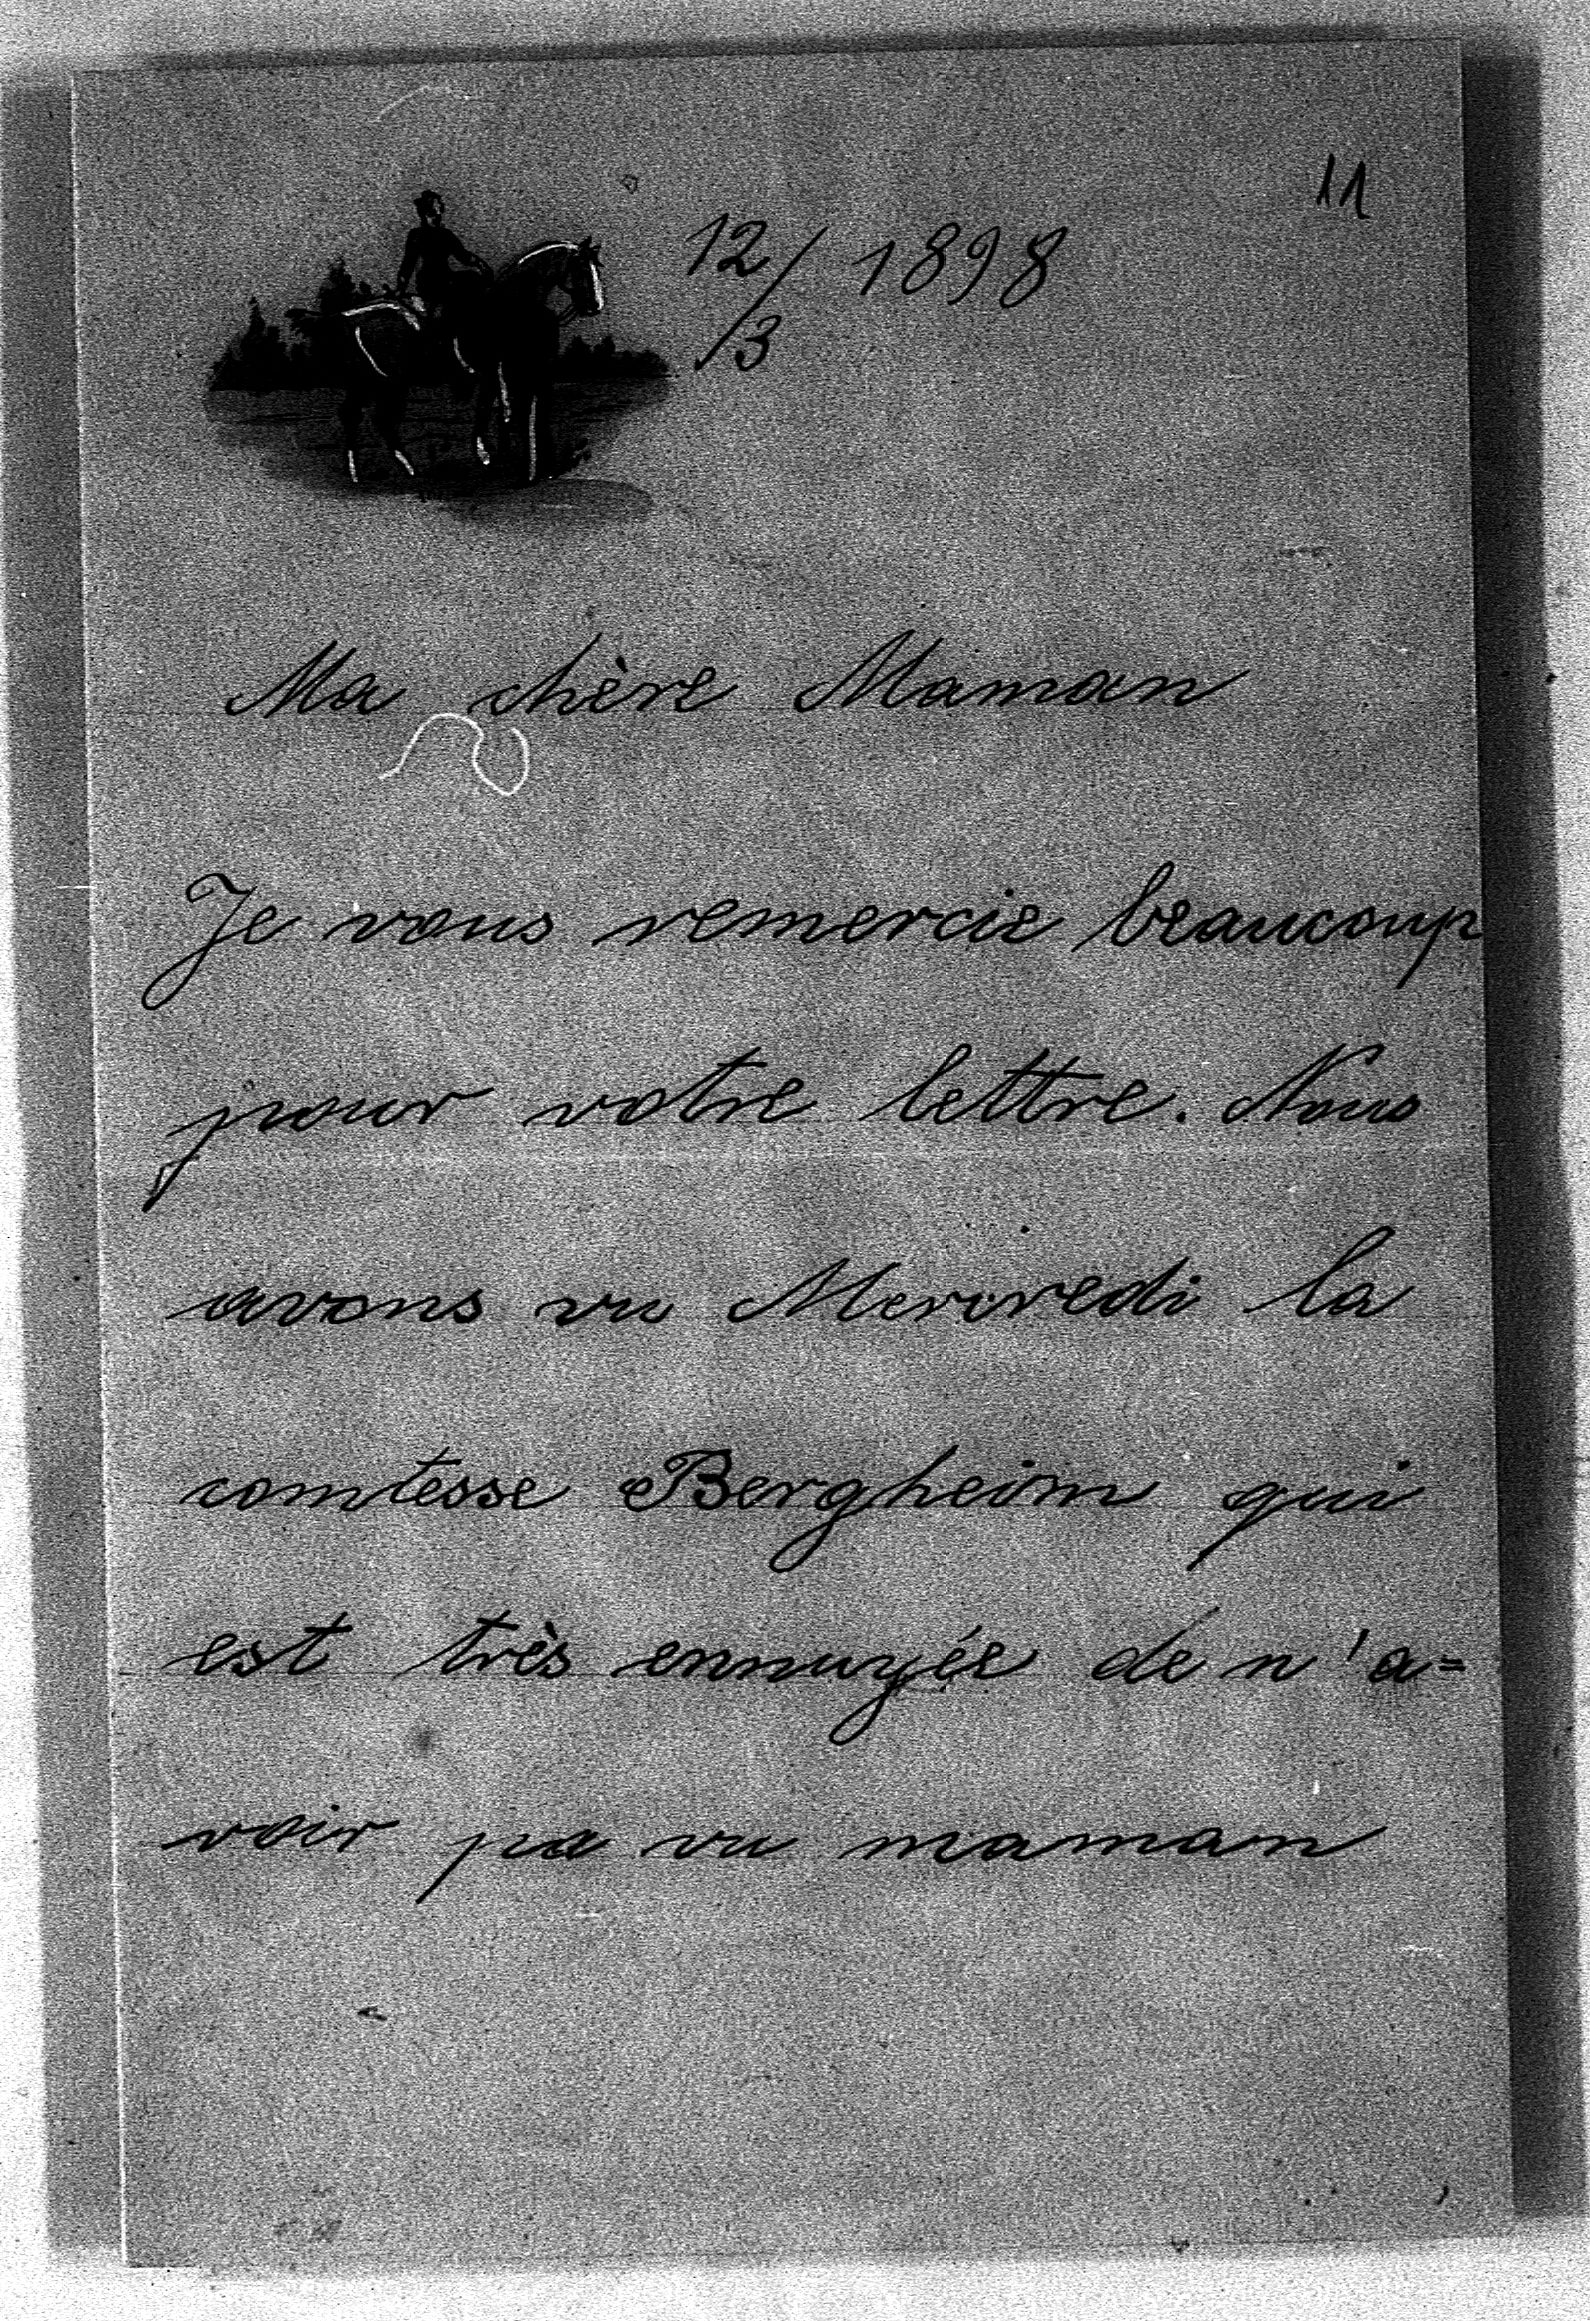 11
12/3 1898
Ma chère Maman
Je vous remercie beaucoup
pour votre lettre. Nous
avons vu Mercredi la
comtesse Bergheim qui
est très ennuyée de n'a=
voir pa vu maman